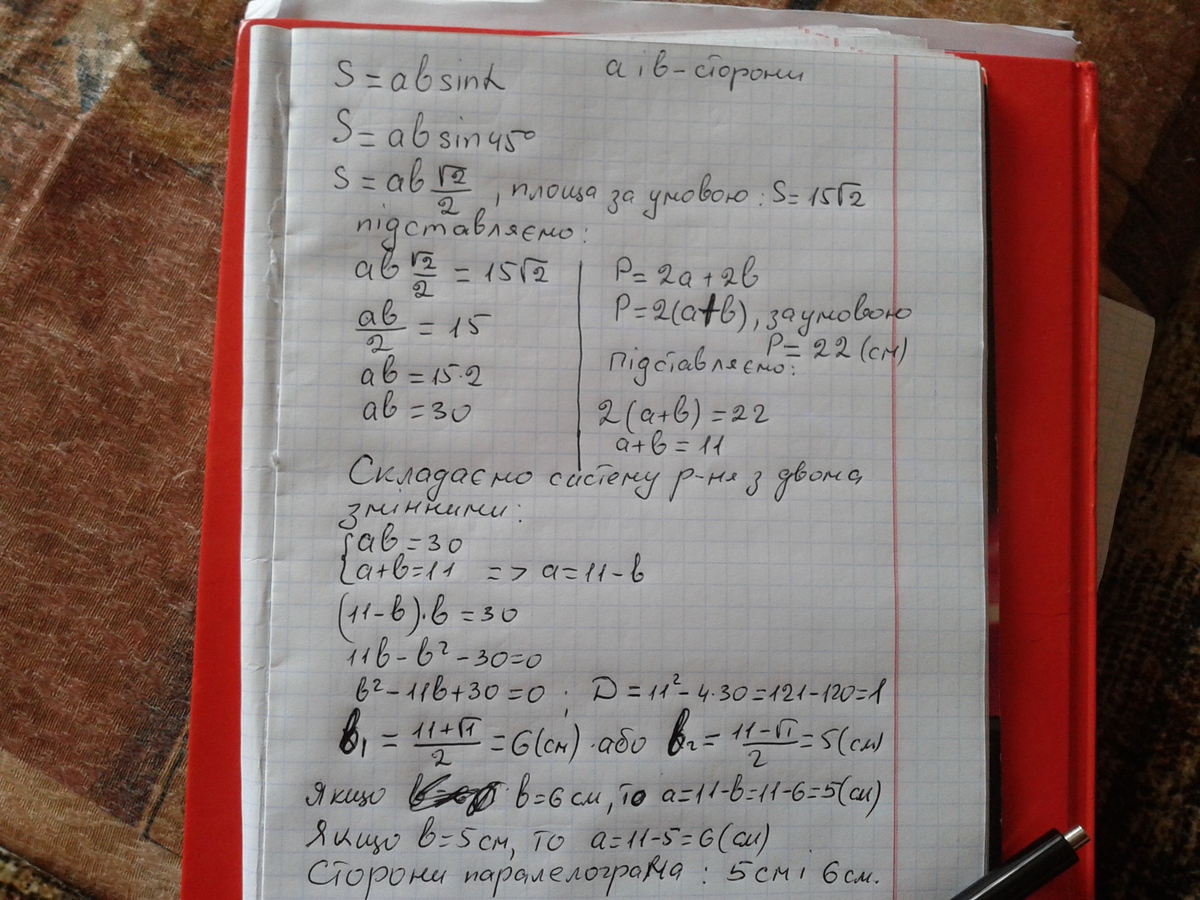 S = ab sinα        a і b – сторони
S = ab sin45°
S = ab √2/2 , площа за умовою : S = 15√2
підставляємо :
ab √2/2 = 15√2
ab/2 = 15
ab = 15·2
ab = 30
P = 2a + 2b
P = 2(a+b), за умовою
P = 22 (см)
Підставляємо:
2(a+b) = 22
a+b = 11
Складаємо систему р-ня з двома
змінними :
{ab = 30
{a+b=11 => a=11-b
(11-b)·b = 30
11b - b² - 30=0
b² - 11b + 30 = 0 ; D = 11² - 4·30 = 121-120=1
b₁ = (11+√1)/2 = 6(см) · або b₂ = (11-√1)/2 = 5(см)
Якщо b=6 см, то a=11-b=11-6=5(см)
Якщо b=5см, то a=11-5=6(см)
Сторони паралелограма : 5см і 6см.